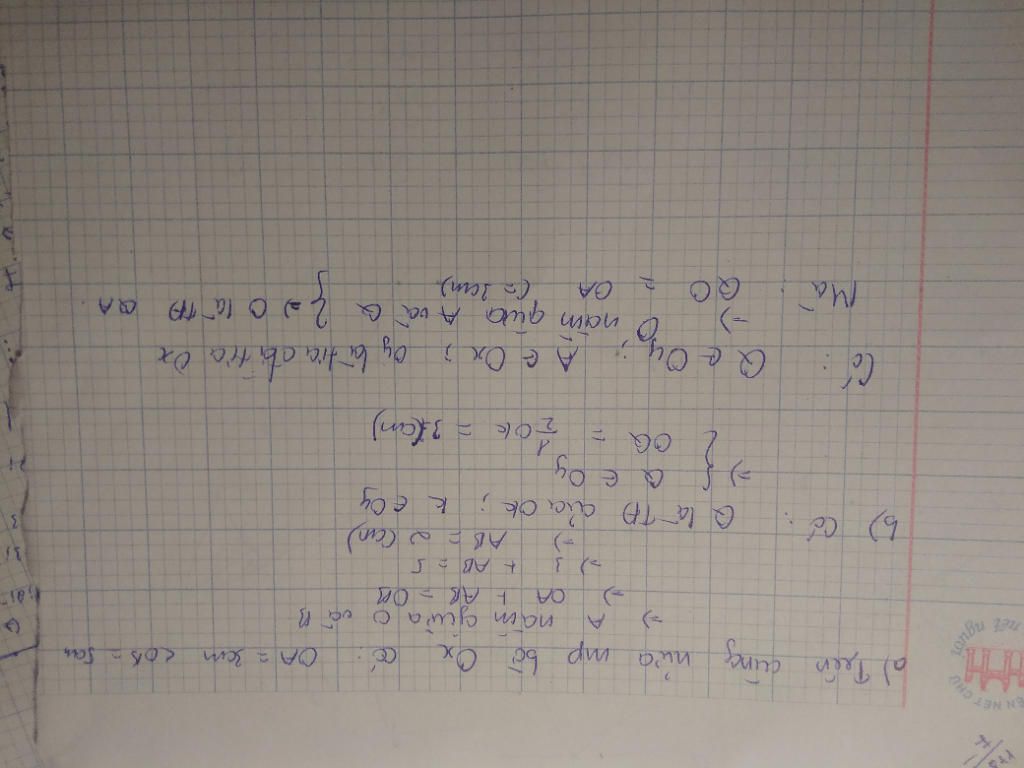 a) Trên cùng nửa mp bờ Ox có: OA = 3cm < OB = 5cm
=> A nằm giữa O và B
=> OA + AB = OB
=> 3 + AB = 5
=> AB = 2 (cm)
b) Có: Q là TĐ của OK; K ∈ Oy
=> { Q ∈ Oy
OQ = 1/2 OK = 3 (cm)
Có: Q ∈ Oy; A ∈ Ox; Oy là tia đối tia Ox
=> O nằm giữa A và Q } => O là TĐ QA
Mà: QO = OA (= 3cm)
NÉT CHỮ
NẾT NGƯỜI